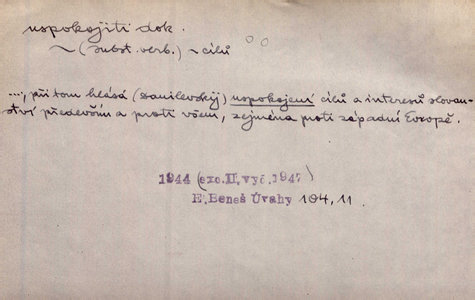 uspokojiti dok.
~ (subst. verb.) ~ cílů
..., při tom hlásá (Danilevskij) uspokojení cílů a interesů slovan-
ství především a proti všem, zejména proti západní Evropě.
1944 (exc. II. vyd. 1947)
E. Beneš Úvahy 104, 11.